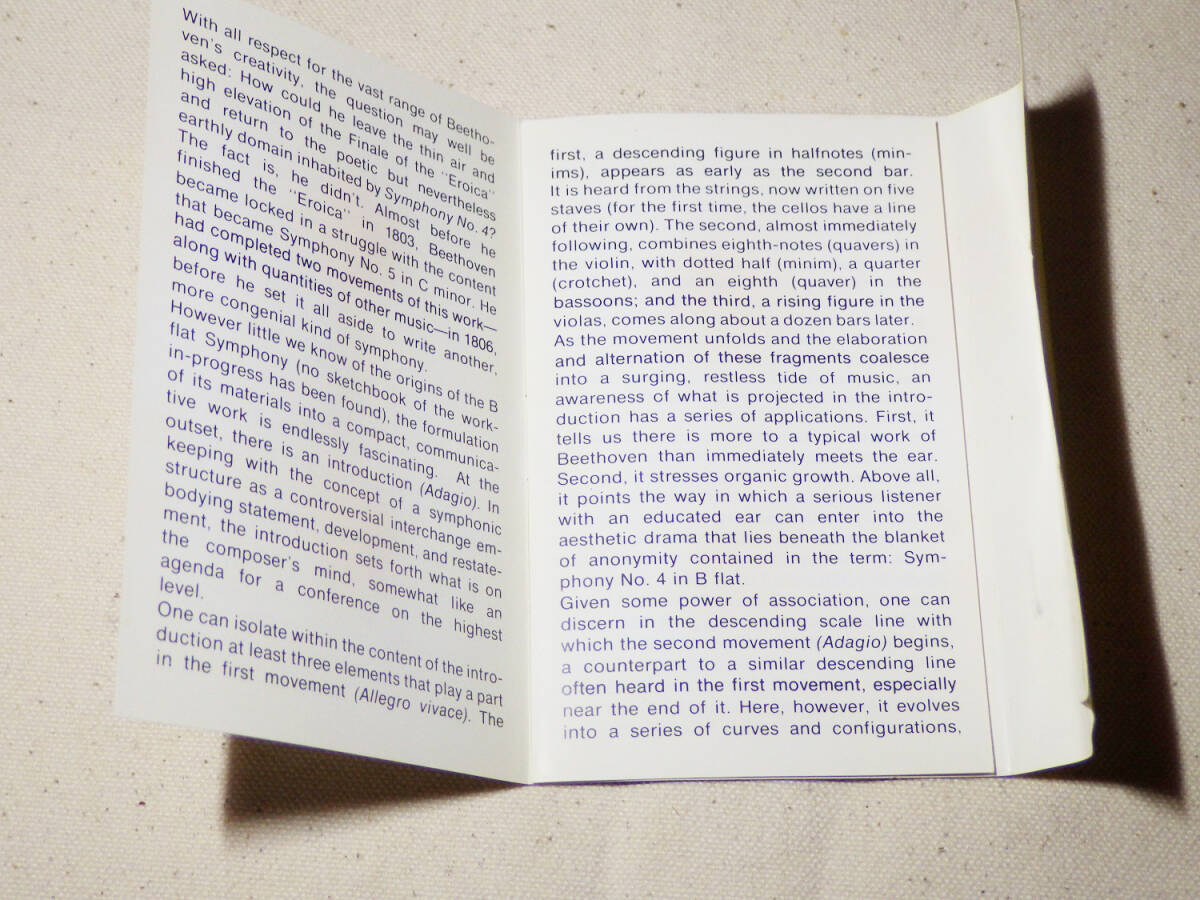 With all respect for the vast range of Beetho-
ven's creativity, the question may well be
asked: How could he leave the thin air and
high elevation of the Finale of the "Eroica"
and return to the poetic but nevertheless
earthly domain inhabited by Symphony No. 4?
The fact is, he didn't. Almost before he
finished the "Eroica" in 1803, Beethoven
became locked in a struggle with the content
that became Symphony No. 5 in C minor. He
had completed two movements of this work—
along with quantities of other music—in 1806,
before he set it all aside to write another,
more congenial kind of symphony.
However little we know of the origins of the B
flat Symphony (no sketchbook of the work-
in-progress has been found), the formulation
of its materials into a compact, communica-
tive work is endlessly fascinating. At the
outset, there is an introduction (Adagio). In
keeping with the concept of a symphonic
structure as a controversial interchange em-
bodying statement, development, and restate-
ment, the introduction sets forth what is on
the composer's mind, somewhat like an
agenda for a conference on the highest
level.
One can isolate within the content of the intro-
duction at least three elements that play a part
in the first movement (Allegro vivace). The
first, a descending figure in halfnotes (min-
ims), appears as early as the second bar.
It is heard from the strings, now written on five
staves (for the first time, the cellos have a line
of their own). The second, almost immediately
following, combines eighth-notes (quavers) in
the violin, with dotted half (minim), a quarter
(crotchet), and an eighth (quaver) in the
bassoons; and the third, a rising figure in the
violas, comes along about a dozen bars later.
As the movement unfolds and the elaboration
and alternation of these fragments coalesce
into a surging, restless tide of music, an
awareness of what is projected in the intro-
duction has a series of applications. First, it
tells us there is more to a typical work of
Beethoven than immediately meets the ear.
Second, it stresses organic growth. Above all,
it points the way in which a serious listener
with an educated ear can enter into the
aesthetic drama that lies beneath the blanket
of anonymity contained in the term: Sym-
phony No. 4 in B flat.
Given some power of association, one can
discern in the descending scale line with
which the second movement (Adagio) begins,
a counterpart to a similar descending line
often heard in the first movement, especially
near the end of it. Here, however, it evolves
into a series of curves and configurations,